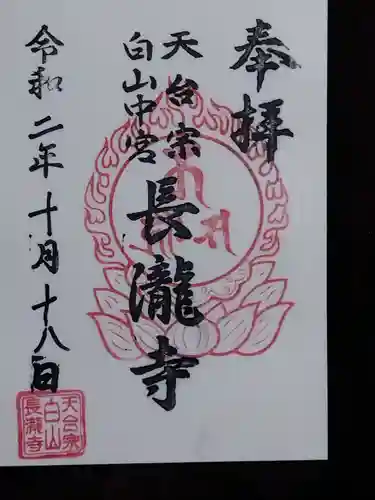 奉拝
天台宗
白山中宮
長瀧寺
令和二年十月十八日
天台宗
白山
長瀧寺